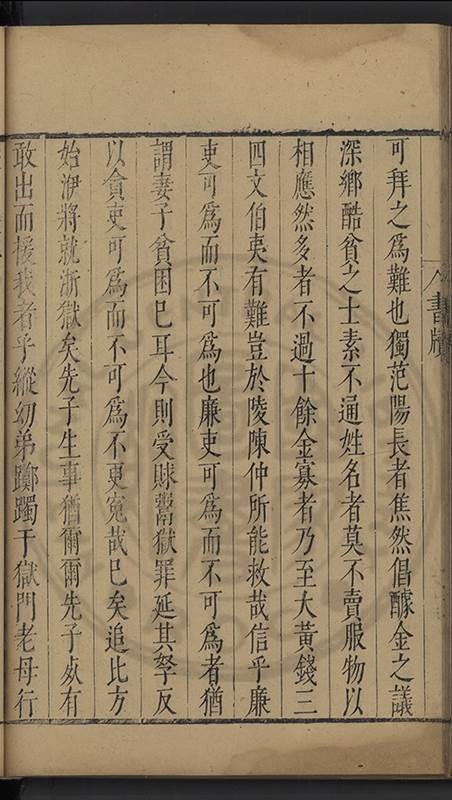 可拜之為難也獨范陽長者焦然倡醵金之議
深鄉酷貧之士素不通姓名者莫不賣服物以
相應然多者不過十餘金寡者乃至大黃錢三
四文伯夷有難豈於陵陳仲所能救哉信乎廉
吏可為而不可為也廉吏可為而不可為者猶
謂妻子貧困已耳今則受賕鬻獄罪延其孥反
以貪吏可為而不可為不更寃哉已矣追比方
始洢將就浙獄矣先子生事猶爾爾先子歿有
敢出而援我者乎縱幼弟躑躅于獄門老母行